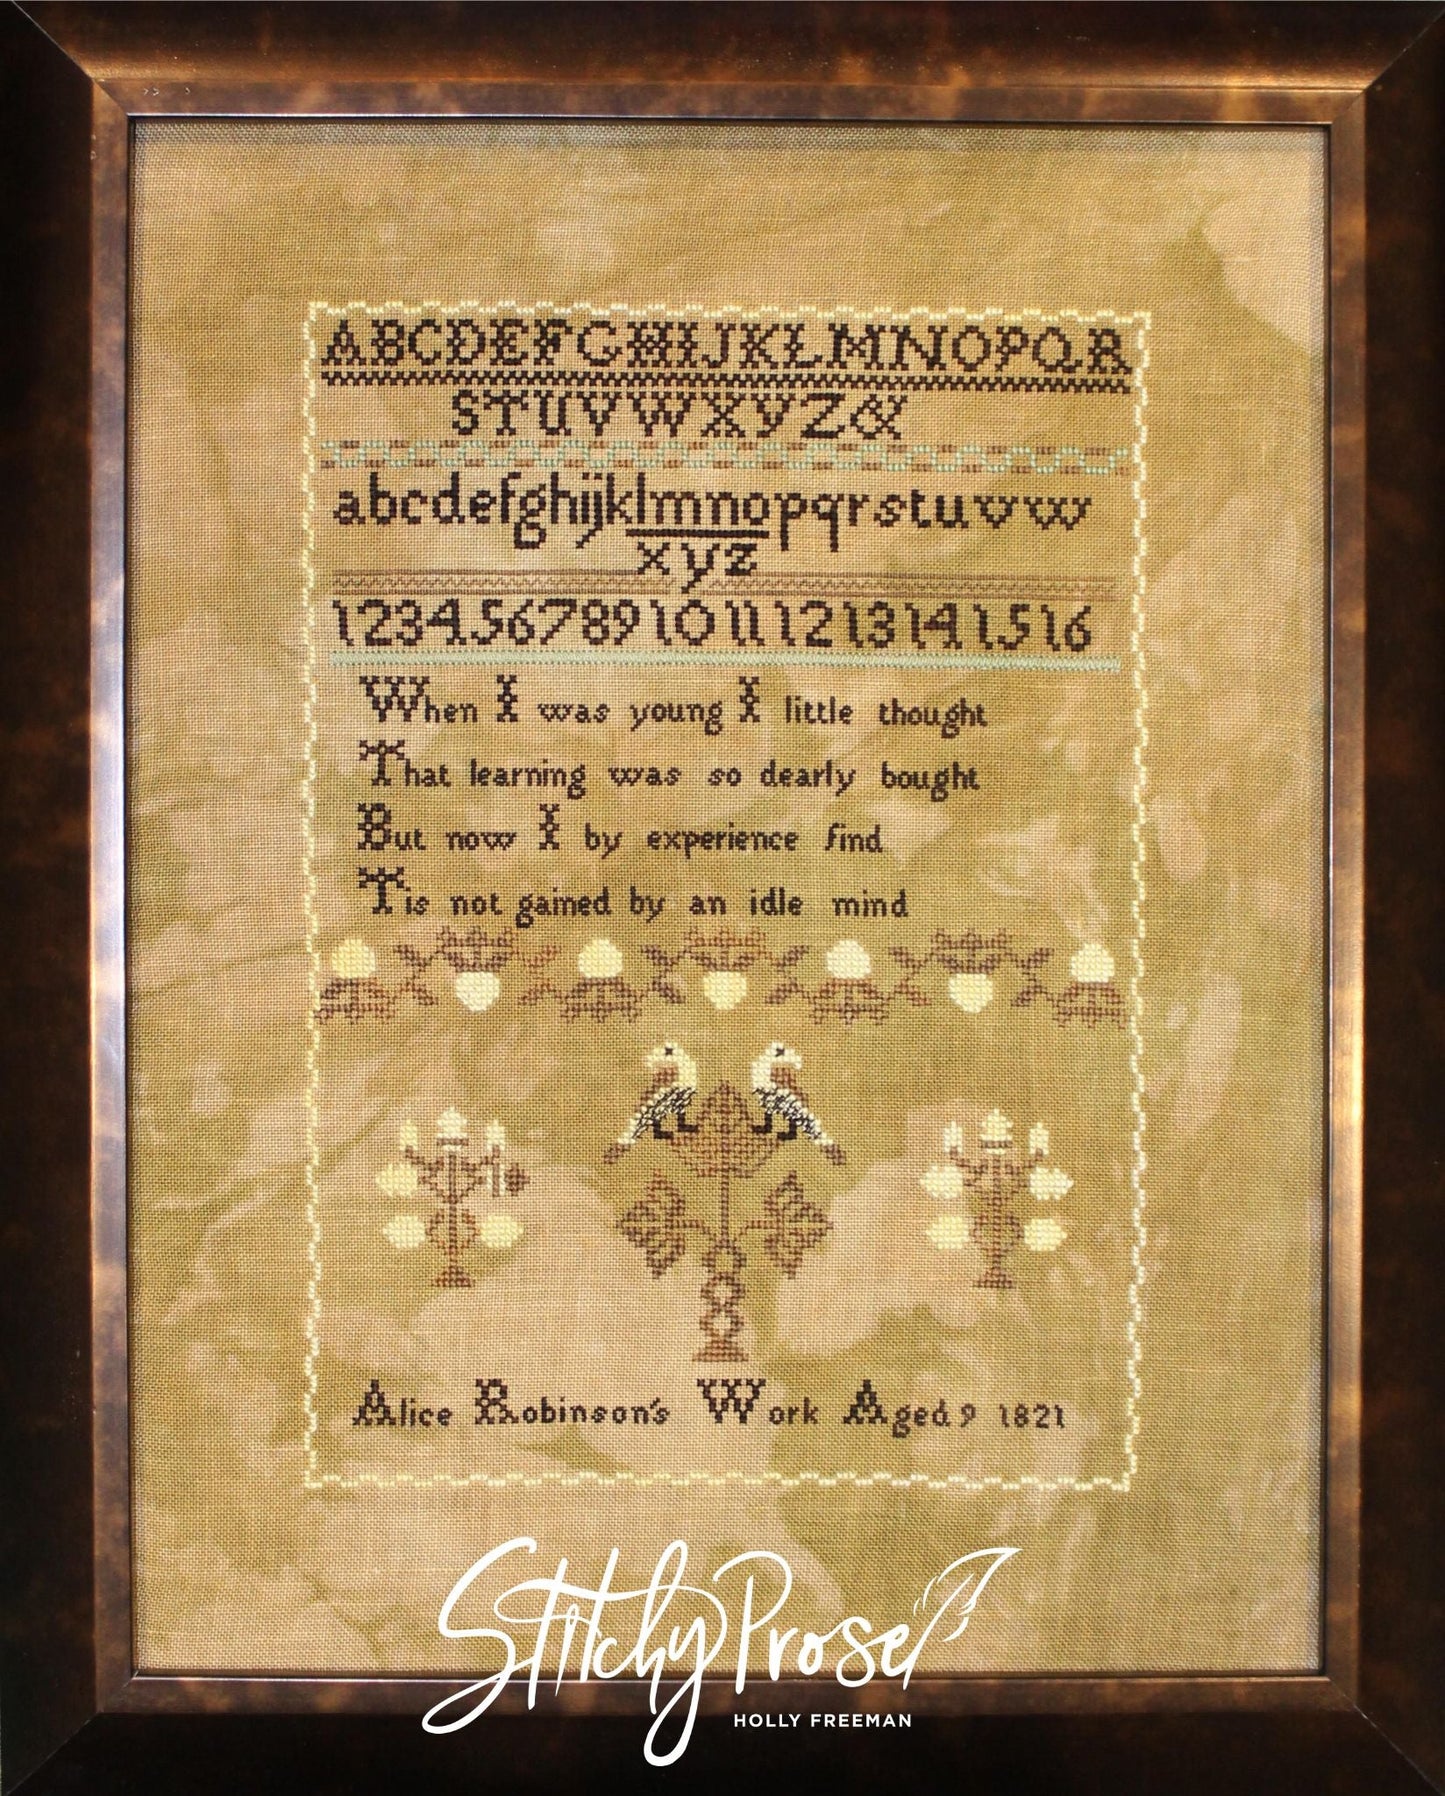 ABCDEFGHIJKLMNOPQR
STUVWXYZ&
abcdefghijklmnopqrstuvw
xyz
12345678910111213141516
When I was young I little thought
That learning was so dearly bought
But now I by experience find
Tis not gained by an idle mind
Alice Robinson's Work Aged 9 1821
Stitchy Prose
HOLLY FREEMAN